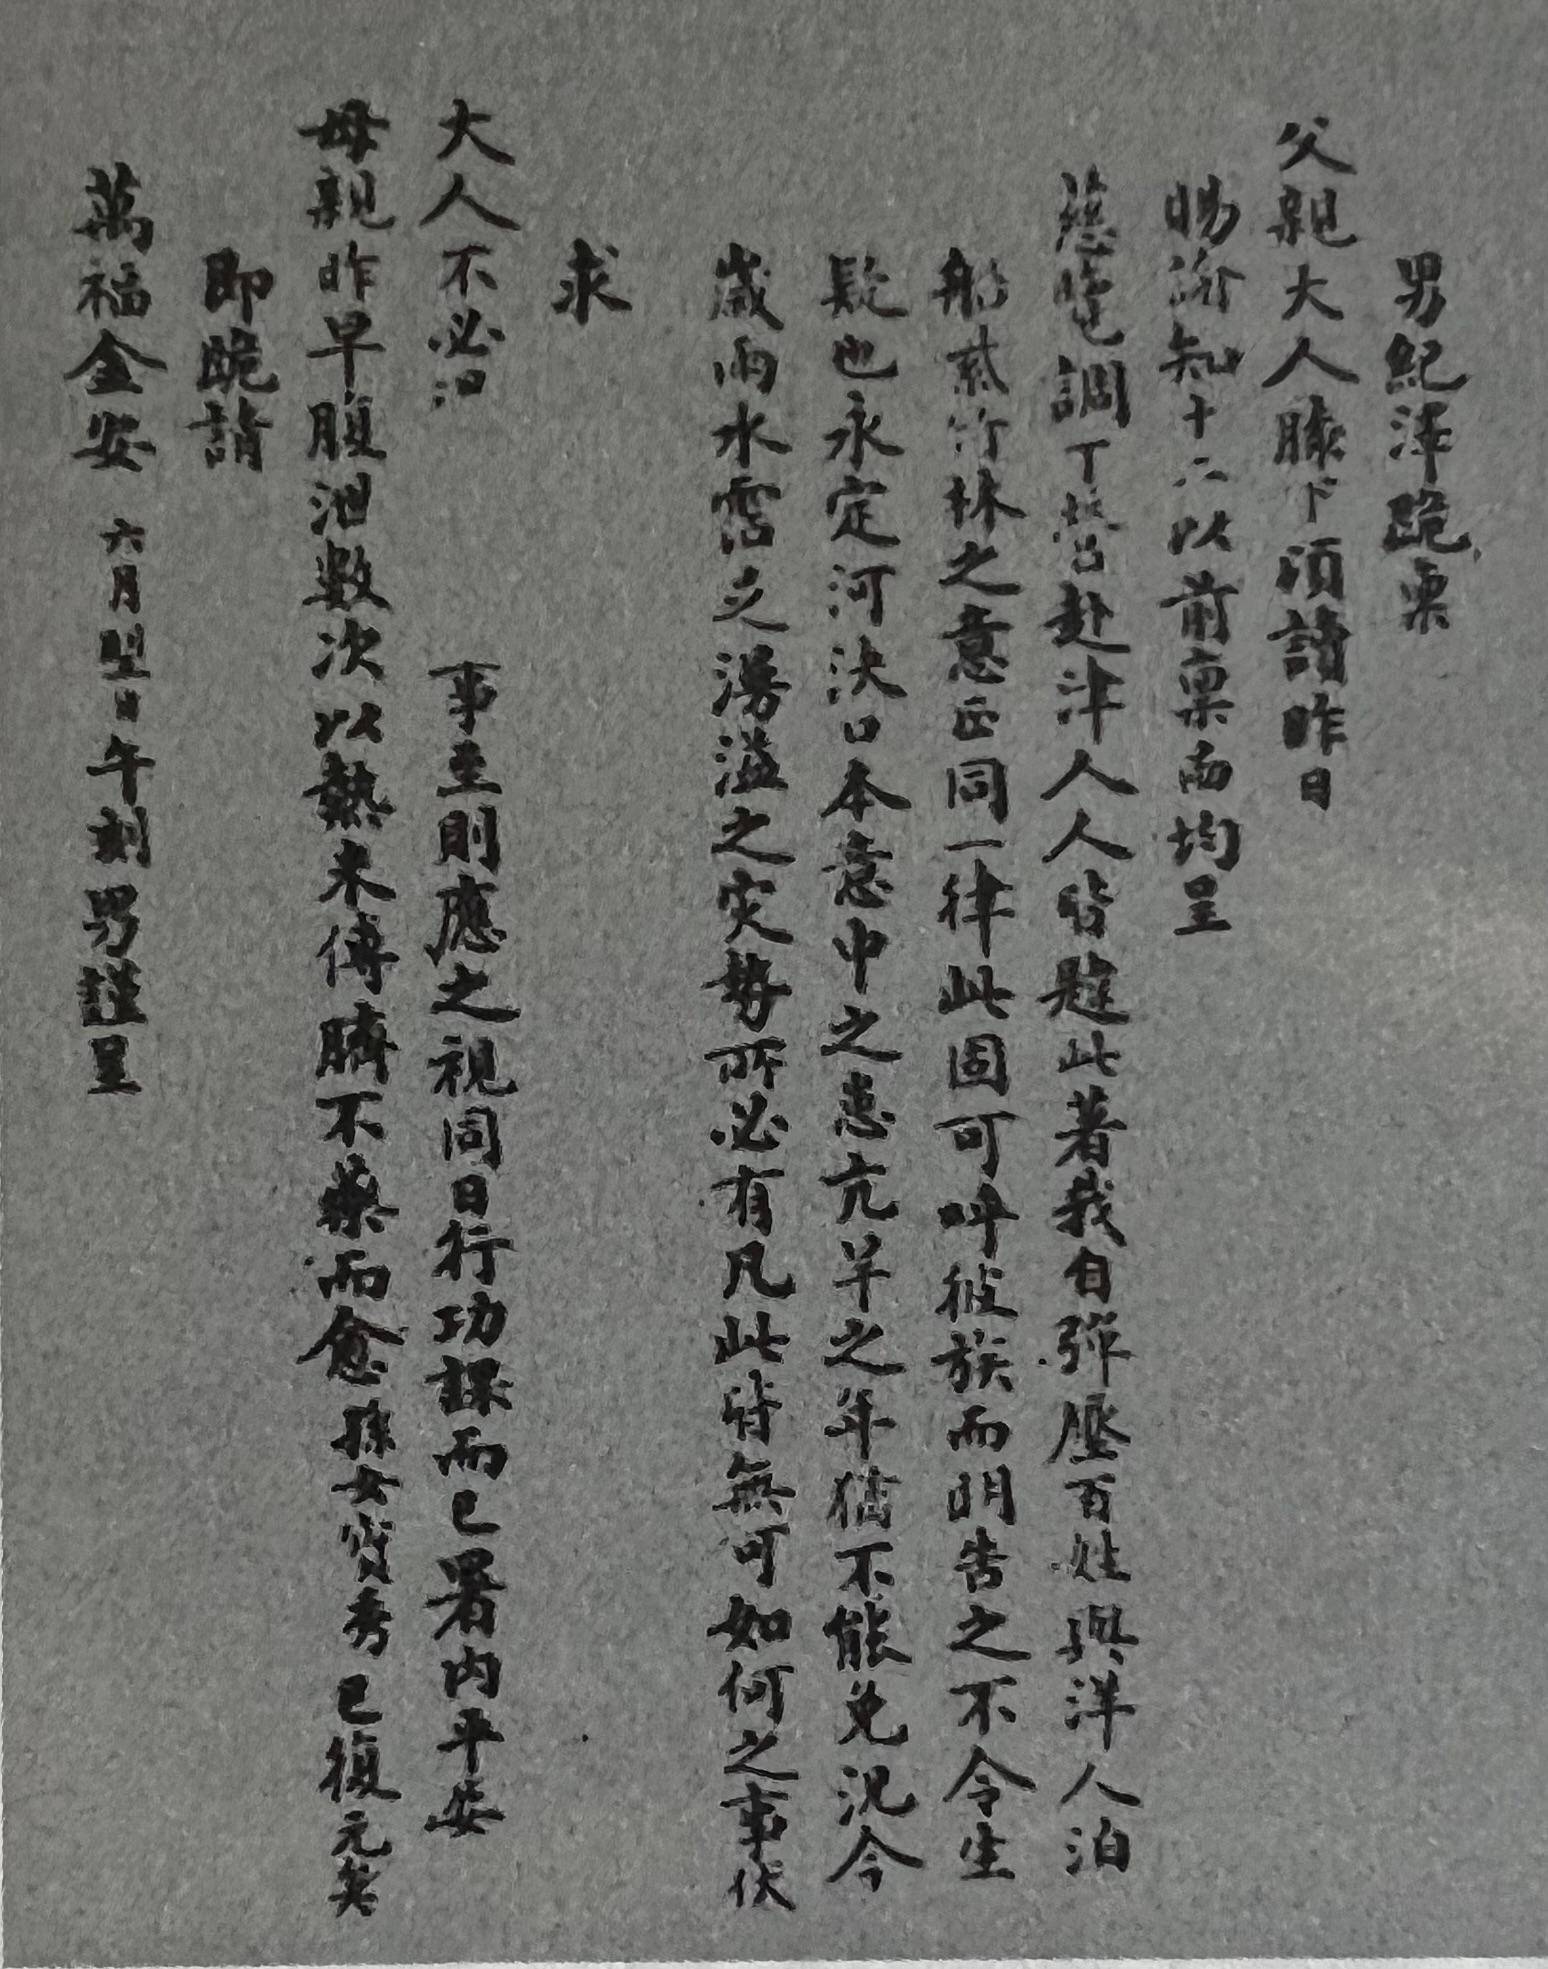 男紀澤跪稟
父親大人膝下頃讀昨日
賜諭知十六以前稟函均呈
慈覽調丁營赴津人人皆疑此著我自彈壓百姓與洋人泊
船紫竹林之意正同一律此固可呼彼族而明告之不令生
疑也永定河決口本意中之患亢旱之年猶不能免況今
歲雨水霑足湯溢之灾勢所必有凡此皆無可如何之事伏
求
大人不必汩 事至則應之視同日行功課而已署内平安
母親昨早腹泄數次以熱米傅臍不藥而愈孫女寶秀已復元矣
即跪請
萬福金安 六月 日午刻男謹呈